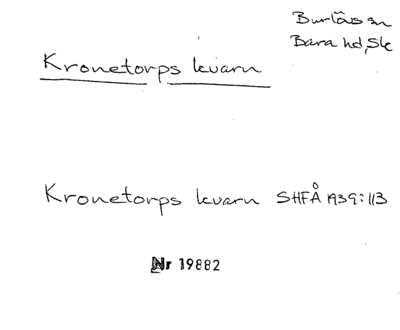 Burlövs sn
Bara hd, Sk
Kronetorps kvarn
Kronetorps kvarn SHFÅ 1939:113
Nr 19882